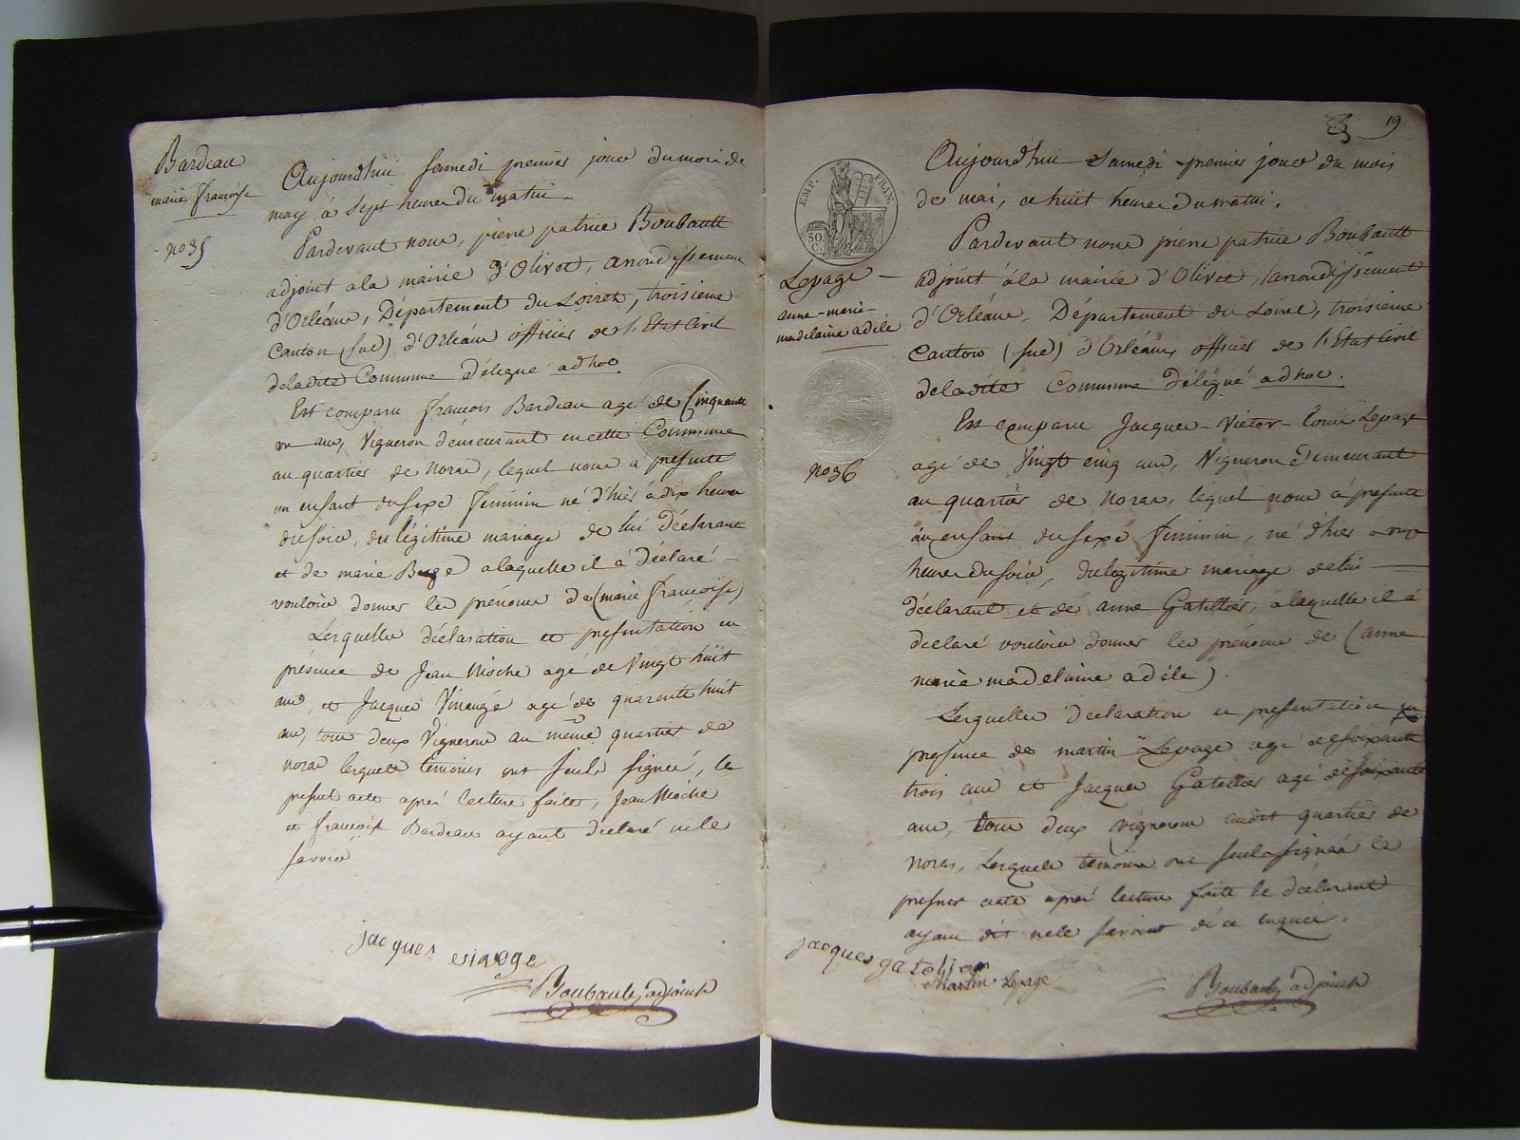 Bardeau
marie françoise
no 35
Aujourd'hui samedi premier jour du mois de
may à sept heures du matin
Pardevant nous, pierre patrice Boubault
adjoint a la mairie d'Olivet, arrondissement
d'Orléans, Département du Loiret, troisieme
Canton (sud) d'Orléans officier de l'Etat Civil
de la dite Commune délégué ad hoc
Est comparu françois Bardeau agé de Cinquante
un ans, Vigneron demeurant en cette Commune
au quartier de noras, lequel nous a presenté
un enfant du sexe feminin né d'hier à dix heures
du soir, du légitime mariage de lui Déclarant
et de marie a laquelle il à déclaré
vouloir donner les prenoms de (marie françoise)
Lesquelles déclaration et presentation en
présence de Jean Mioche agé de Vingt huit
ans, et Jacques Vinauge agé de quarente huit
ans, tous deux Vignerons au même quartier de
noras lesquels témoins ont seuls signés, le
present acte après lecture faite, Jean Mioche
et françois Bardeau ayant déclaré ne le
savoir
jacques vinoge
Boubault, adjoint
19
EMP. FRAN.
50
C.
Lepage
anne-marie-
madelaine adèle
no 36
Aujourd'hui samedi premier jour du mois
de mai, à huit heures du matin.
Pardevant nous pierre patrice Boubault
adjoint à la mairie d'Olivet, arrondissement
d'Orléans, Département du Loiret, troisieme
Canton (sud) d'Orléans officier de l'Etat Civil
de la dite Commune Délégué ad hoc.
Est comparu Jacques-Victor-louis Lepage
agé de Vingt cinq ans, Vigneron demeurant
au quartier de noras, lequel nous à presenté
un enfant du sexe feminin, né d'hier à onze
heures du soir, du legitime mariage de lui
déclarant et de anne Gatellier, à laquelle il à
declaré vouloir donner les prénoms de (anne
marie madelaine adèle).
Lesquelles déclaration et presentation en
presence de martin Lepage agé de soixante
trois ans et Jacques Gatellier agé de soixante
ans, tous deux vignerons audit quartier de
noras, Lesquels témoins ont seuls signés le
present acte après lecture faite le déclarant
ayant dit ne le savoir de ce enquis.
jacques gatellier
Martin Lepage
Boubault, adjoint